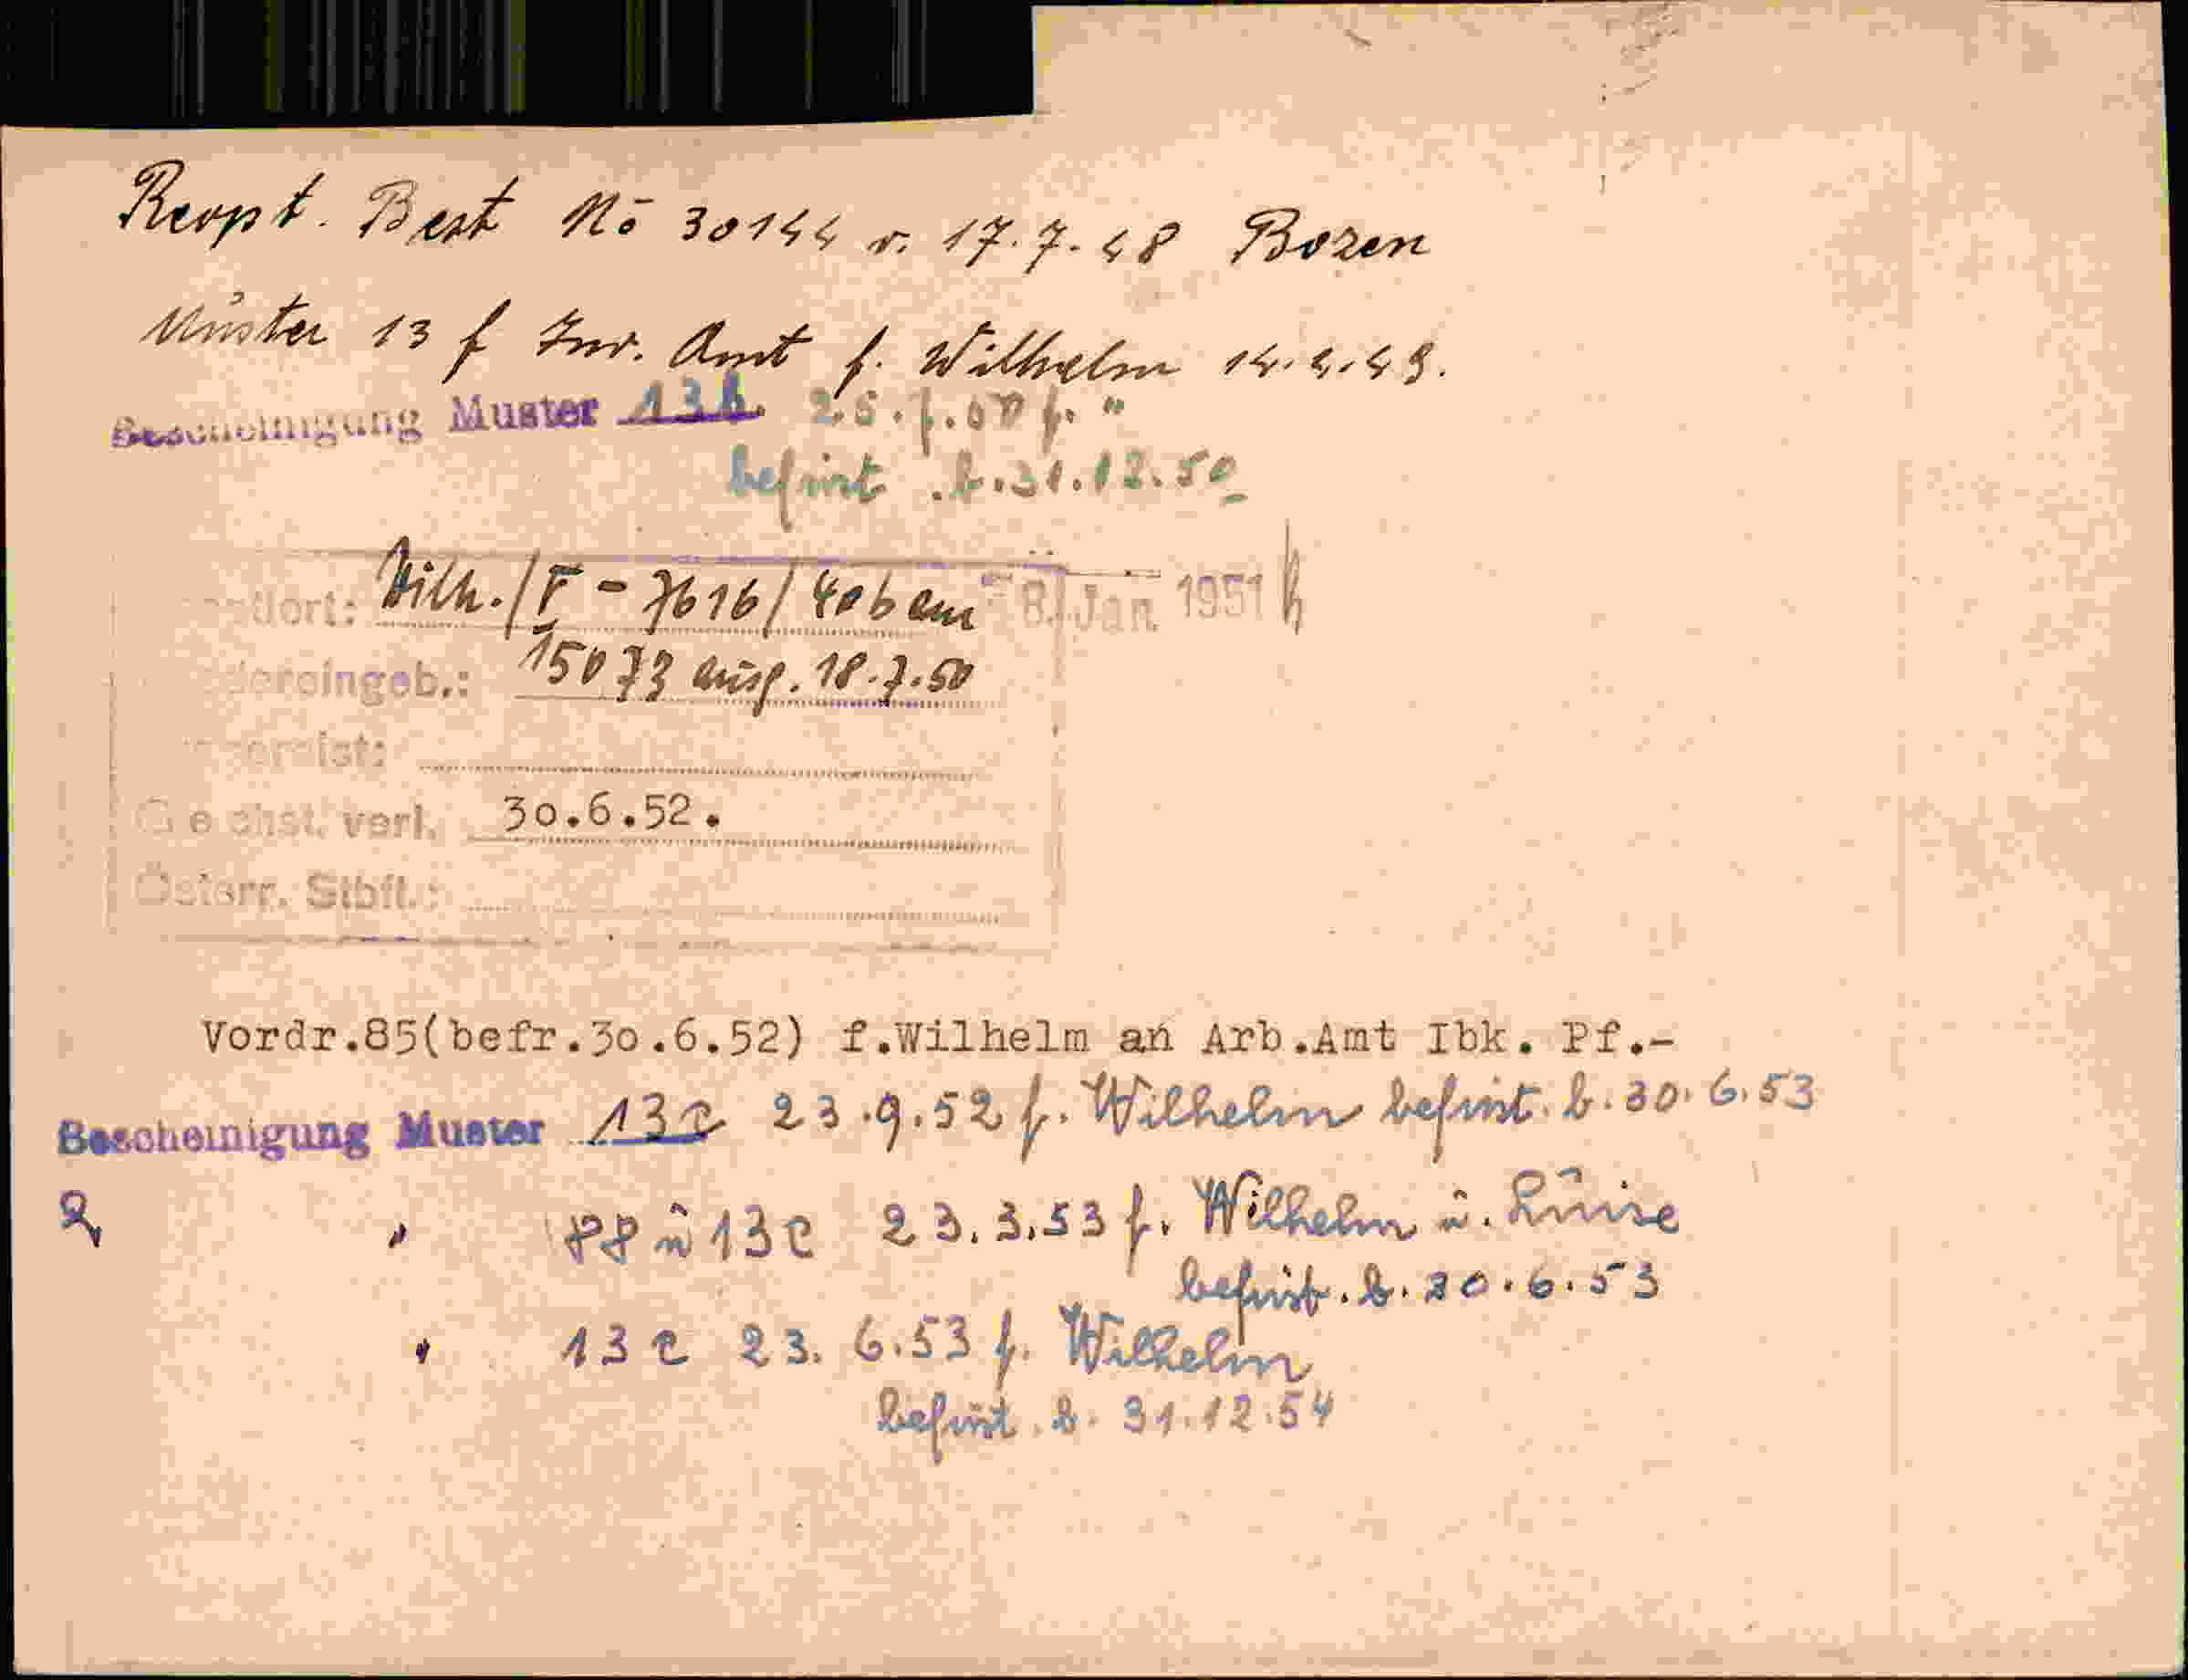 Reopt. Best No 30144 v. 17.7.48 Bozen
Muster 13 f Inv. Amt f. Wilhelm 14.4.49.
Bescheinigung Muster 13 f. "
befrist. b. 31.12.50
Wilh./F - 7616/40b am 8. Jan. 1951
ereingeb.: 15073 ausg. 18.7.50
verl. 30.6.52.
Österr. Stbft.:
Vordr.85(befr.30.6.52) f.Wilhelm an Arb.Amt Ibk. Pf.-
Bescheinigung Muster 13c 23.9.52 f. Wilhelm befrist. b. 30.6.53
" 88 u 13c 23.3.53 f. Wilhelm u. Luise
befrist. b. 30.6.53
" 13c 23.6.53 f. Wilhelm
befrist. b. 31.12.54